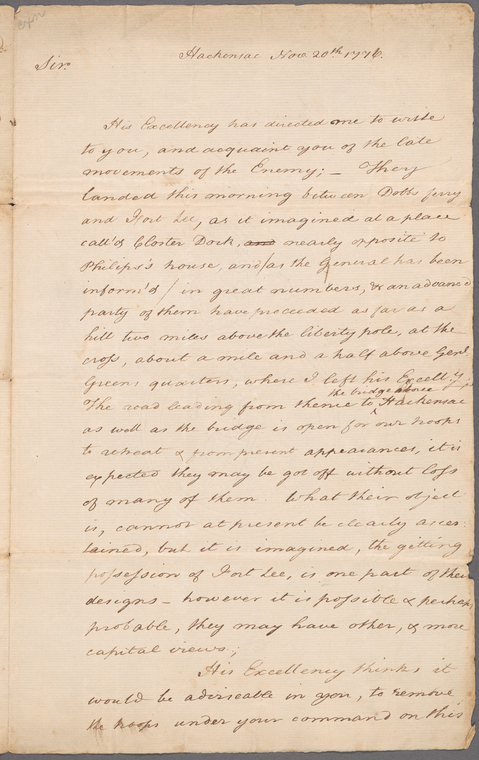 Hackensac Nov. 20th 1776.
Sir.
His Excellency has directed me to write
to you, and acquaint you of the late
movements of the Enemy; – They
landed this morning between Dobbs ferry
and Fort Lee, as it imagined at a place
call'd Closter Dock, and nearly opposite to
Philips's house, and/as the General has been
inform'd/ in great numbers, & an advanced
party of them have proceeded as far as a
hill two miles above the liberty pole, at the
cross, about a mile and a half above Genl.
Greens quarters, where I left his Excelly.
the bridge above
The road leading from thence to Hackensac
as well as the bridge is open for our troops
to retreat & from present appearances, it is
expected they may be got off without loss
of many of them. What their object
is, cannot at present be clearly ascer-
tained, but it is imagined, the gitting
possession of Fort Lee, is one part of their
designs – however it is possible & perhaps
probable, they may have other, & more
capital views;
His Excellency thinks it
would be adviseable in you, to remove
the troops under your command on this